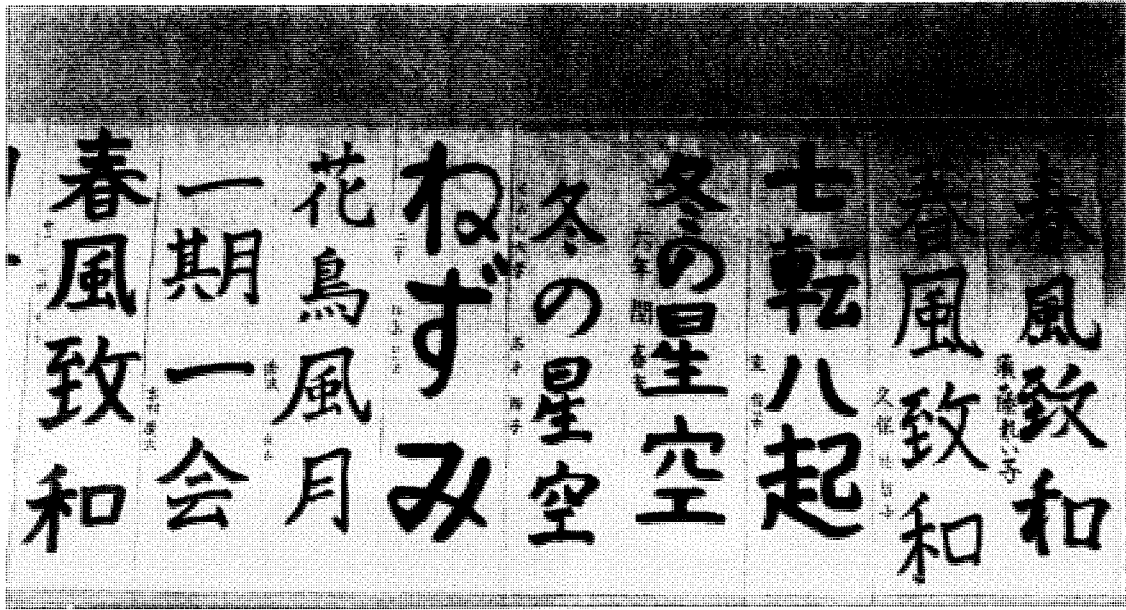 春風致和
春風致和
久保
七転八起
冬の星空
六年
冬の星空
ねずみ
花鳥風月
一期一会
春風致和